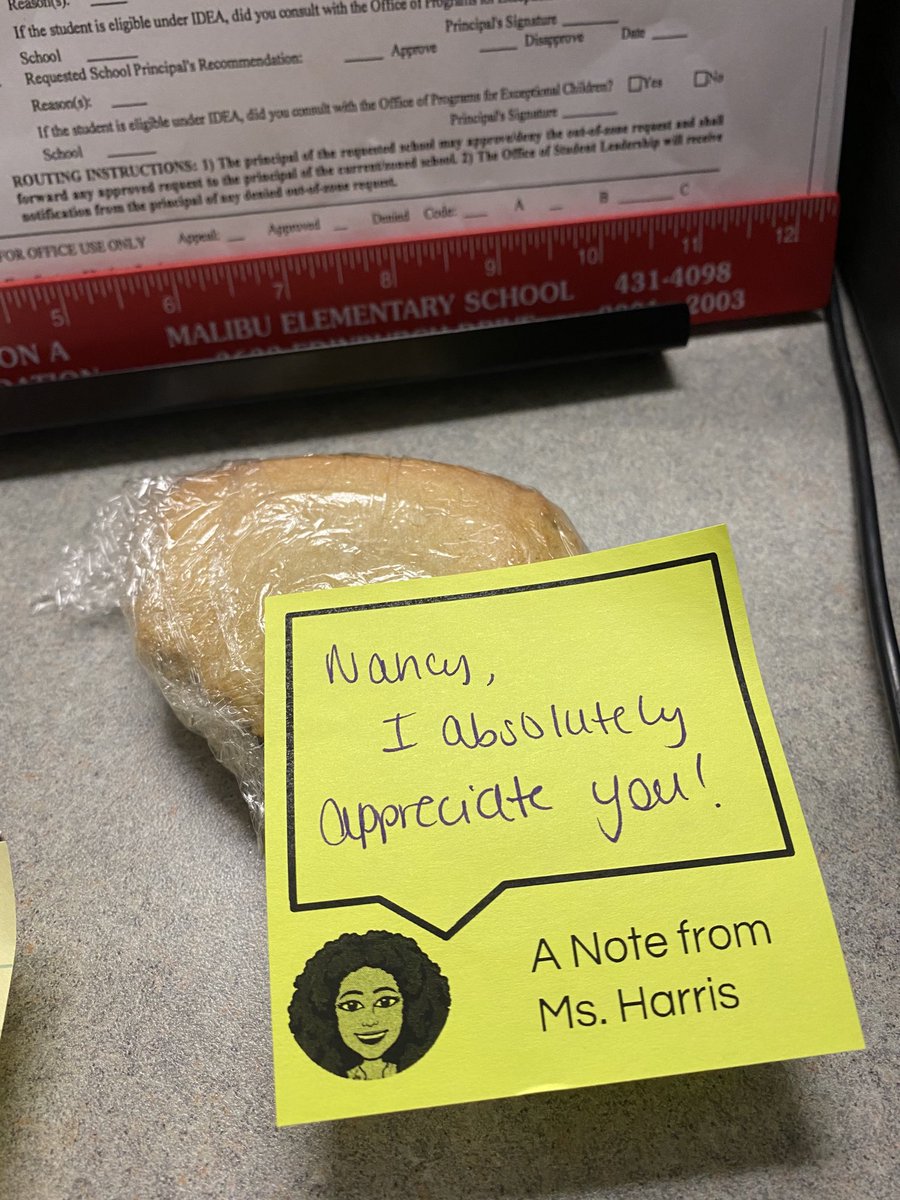 Reason(s):
If the student is eligible under IDEA, did you consult with the Office of Programs for
Principal's Signature
School
Requested School Principal's Recommendation: Approve Disapprove Date
Reason(s):
If the student is eligible under IDEA, did you consult with the Office of Programs for Exceptional Children? Yes No
Principal's Signature
School
ROUTING INSTRUCTIONS: 1) The principal of the requested school may approve/deny the out-of-zone request and shall
forward any approved request to the principal of the current/zoned school. 2) The Office of Student Leadership will receive
notification from the principal of any denied out-of-zone request.
FOR OFFICE USE ONLY Appeal: Approved Denied Code: A B C
5 6 7 8 9 10 11 12
ON A MALIBU ELEMENTARY SCHOOL 431-4098
2003
Nancy,
I absolutely
appreciate you!
A Note from
Ms. Harris